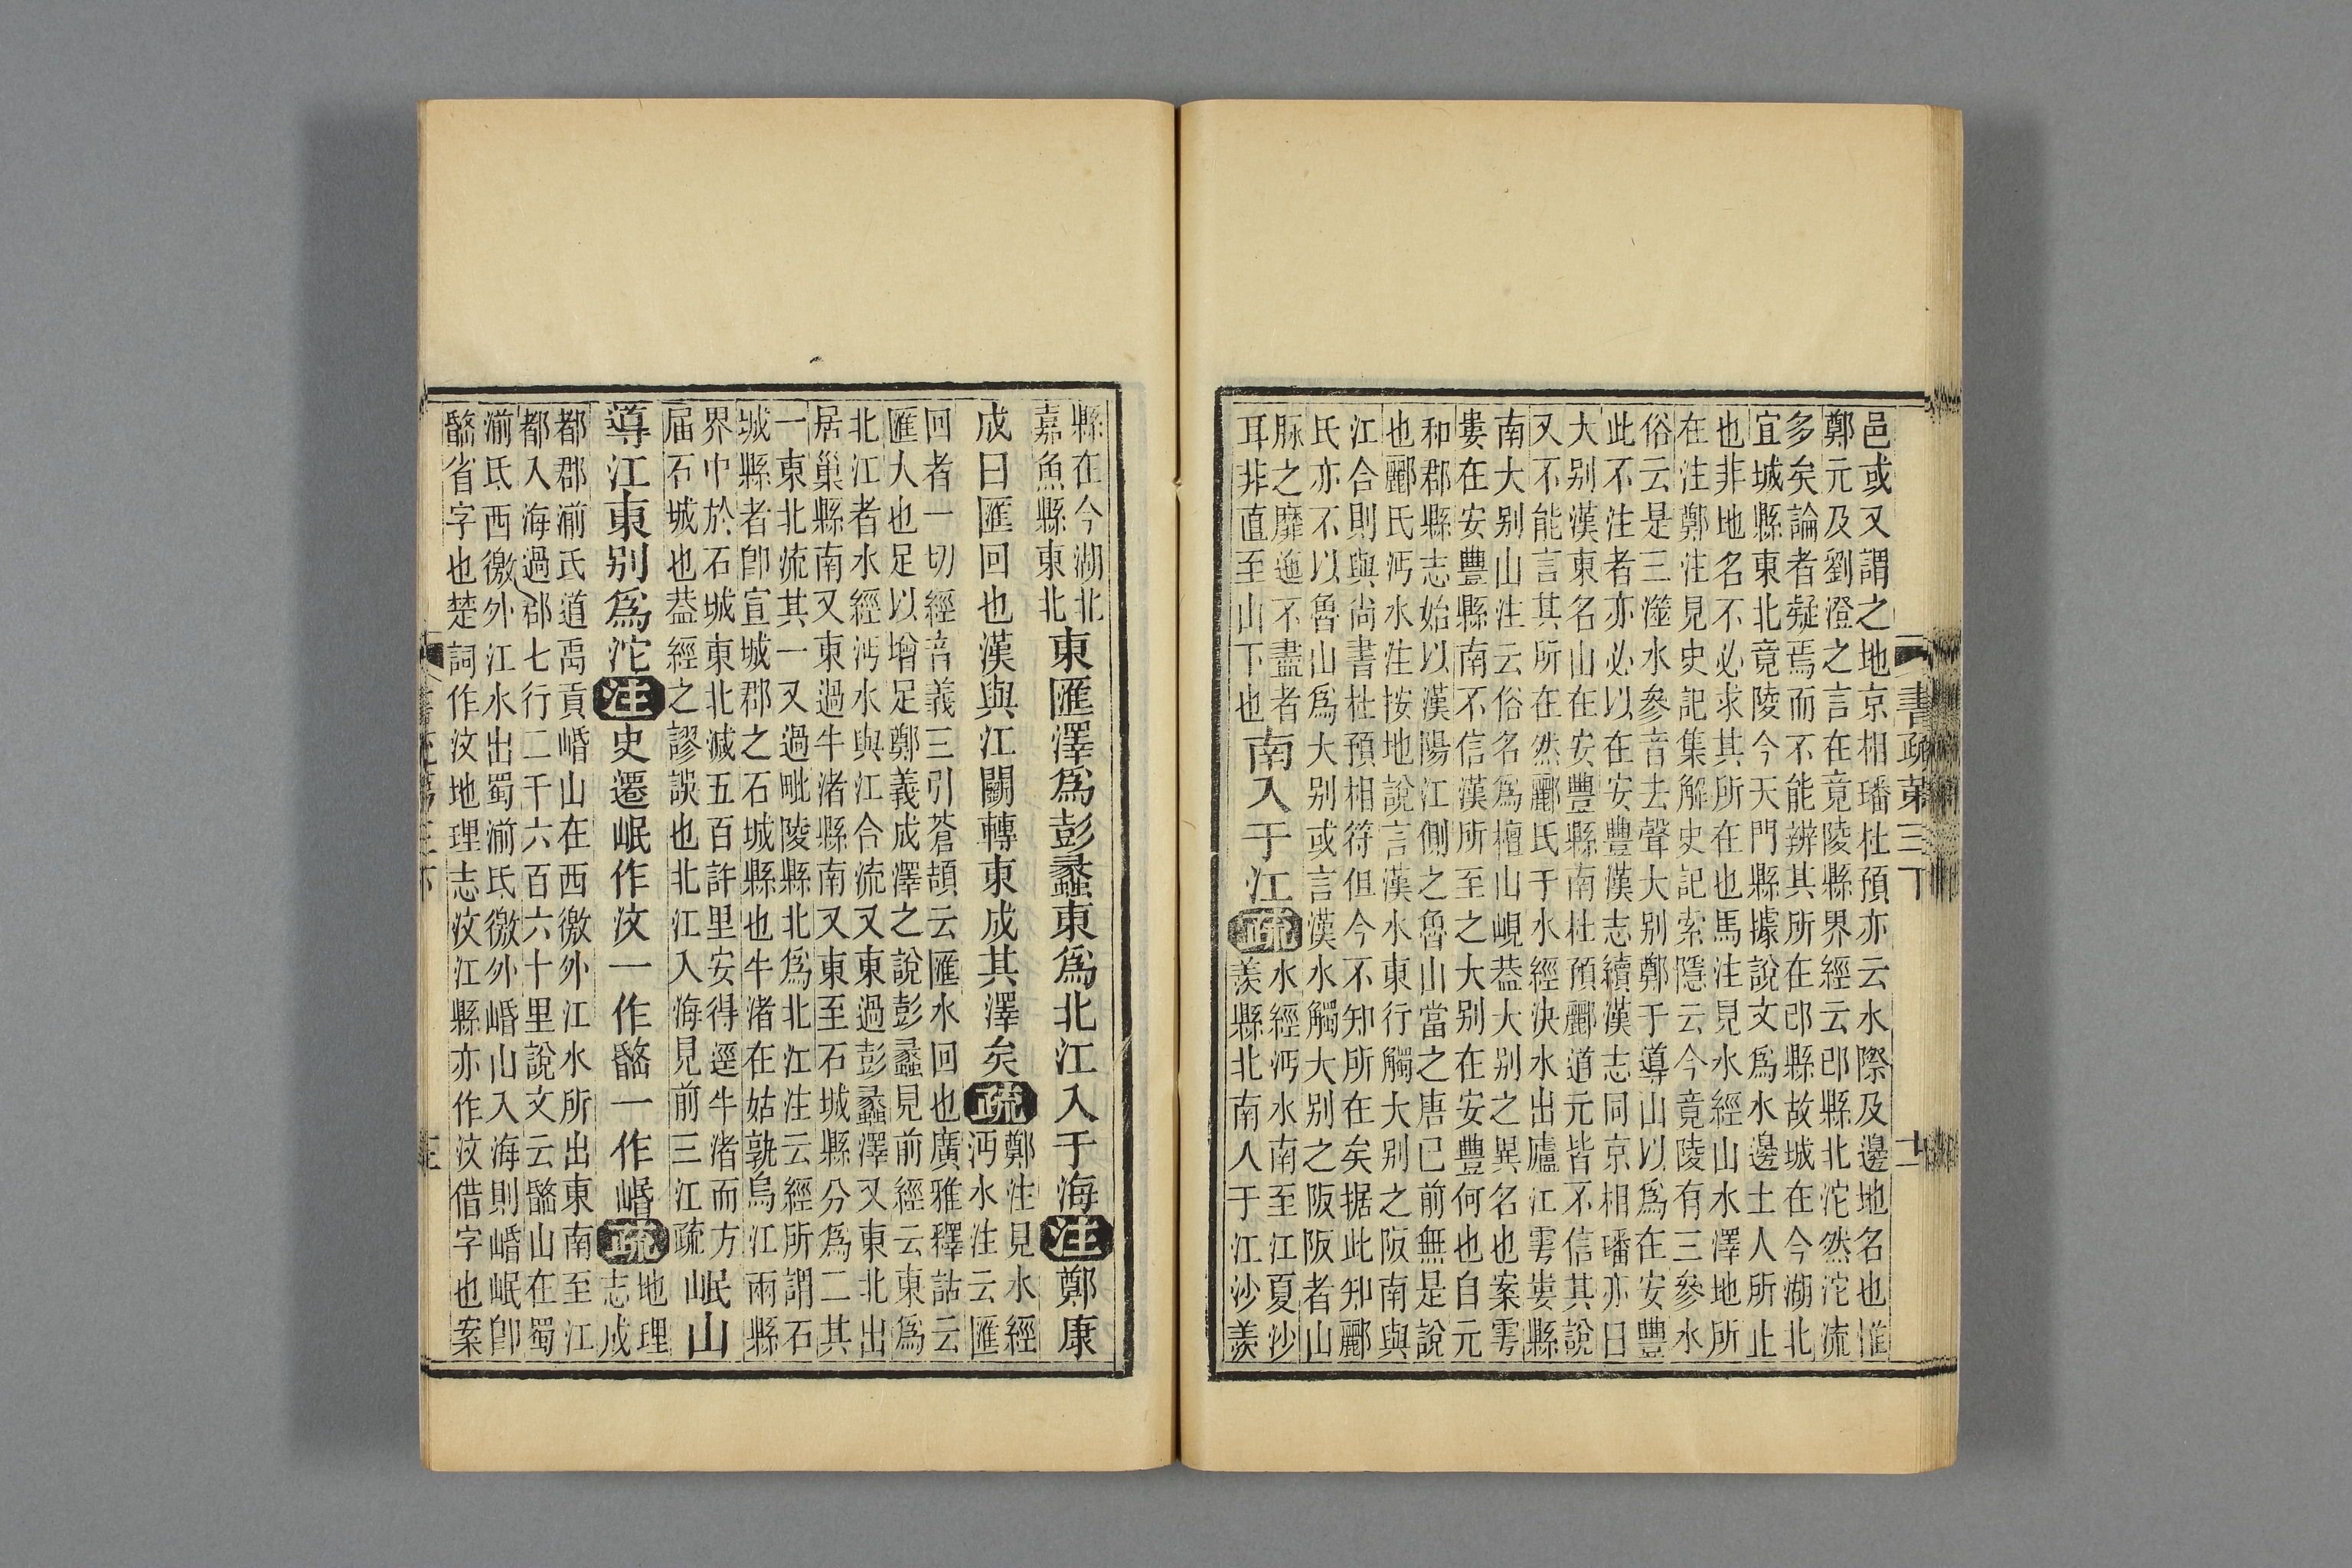 書疏弟三下 十一
邑或又謂之地京相璠杜預亦云水際及邊地名也惟
鄭元及劉澄之言在竟陵縣界經云邔縣北沱然沱流
多矣論者疑焉而不能辨其所在邔縣故城在今湖北
宜城縣東北竟陵今天門縣據說文爲水邊土人所止
也非地名不必求其所在也馬注見水經山水澤地所
在注鄭注見史記集解史記索隱云今竟陵有三參水
俗云是三澨水參音去聲大别鄭于導山以爲在安豐
此不注者亦必以在安豐漢志續漢志同京相璠亦曰
大别漢東名山在安豐縣南杜預酈道元皆不信其說
又不能言其所在然酈氏于水經決水出廬江雩婁縣
南大别山注云俗名爲檀山峴葢大别之異名也案雩
婁在安豐縣南不信漢所至之大别在安豐何也自元
和郡縣志始以漢陽江側之魯山當之唐已前無是說
也酈氏沔水注按地說言漢水東行觸大别之阪南與
江合則與尚書杜預相符但今不知所在矣据此知酈
氏亦不以魯山爲大别或言漢水觸大别之阪阪者山
脉之靡迤不盡者
耳非直至山下也
南入于江疏
水經沔水南至江夏沙
羨縣北南入于江沙羨
縣在今湖北
嘉魚縣東北
東匯澤爲彭蠡東爲北江入于海注鄭康
成曰匯回也漢與江鬭轉東成其澤矣疏
鄭注見水經
沔水注云匯
回者一切經音義三引蒼頡云匯水回也廣雅釋詁云
匯大也足以增足鄭義成澤之說彭蠡見前經云東爲
北江者水經沔水與江合流又東過彭蠡澤又東北出
居巢縣南又東過牛渚縣南又東至石城縣分爲二其
一東北流其一又過毗陵縣北爲北江注云經所謂石
城縣者卽宣城郡之石城縣也牛渚在姑孰烏江兩縣
界中於石城東北減五百許里安得逕牛渚而方
屆石城也葢經之謬誤也北江入海見前三江疏
岷山
導江東别爲沱注史遷岷作汶一作一作崏疏
地理
志成
都郡湔氐道禹貢崏山在西徼外江水所出東南至江
都入海過郡七行二千六百六十里說文云山在蜀
湔氐西徼外江水出蜀湔氐徼外崏山入海則崏岷卽
省字也楚詞作汶地理志汶江縣亦作汶借字也案